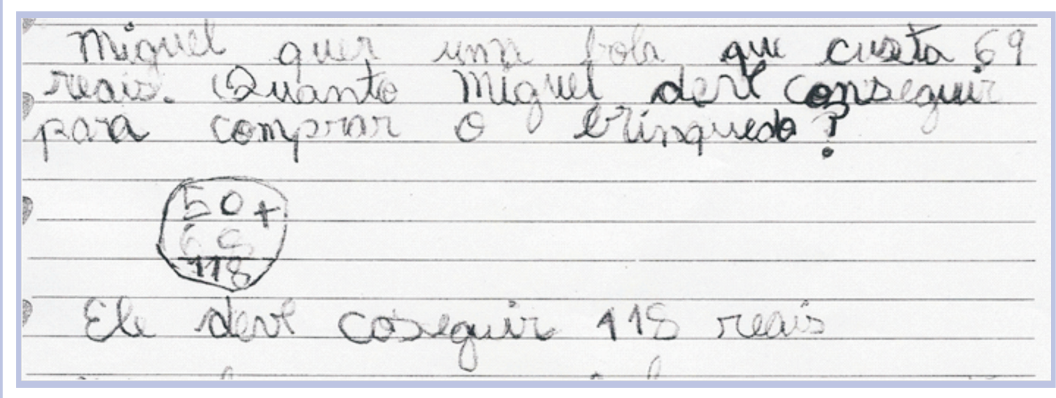 Miguel quer uma bola que custa 69
reais. Quanto Miguel deve conseguir
para comprar o brinquedo?
50+
68
118
Ele deve coseguir 118 reais